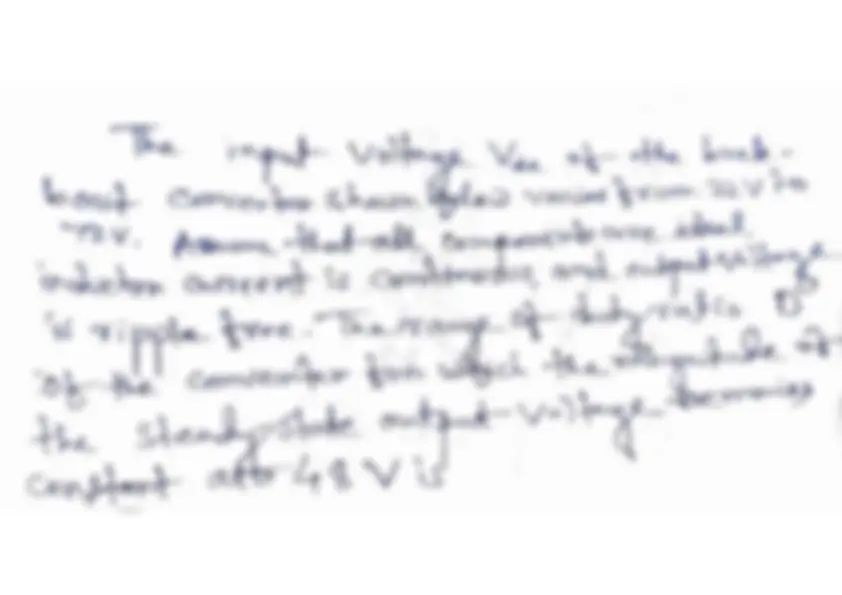 The input voltage Vdc of the buck-
boost converter shown below varies from 32 V to
72 V. Assume that all components are ideal
inductor current is continuous and output voltage
is ripple free. The range of duty ratio D
of the converter for which the magnitude of
the steady state output voltage remains
constant at 48 V is